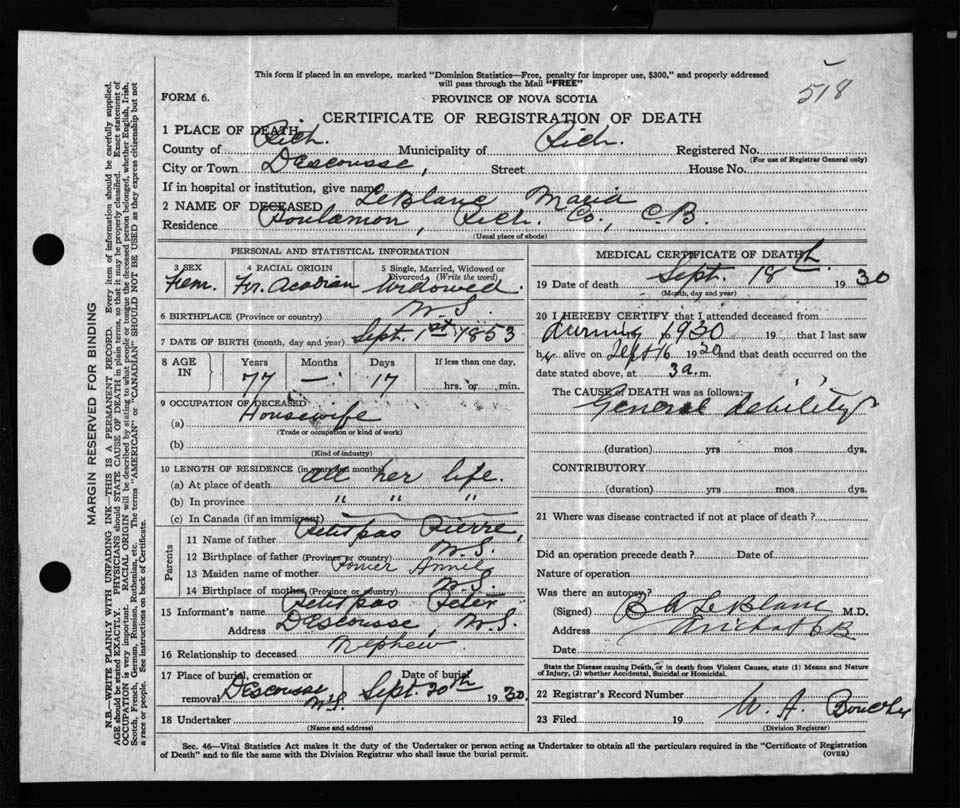 This form if placed in an envelope, marked "Dominion Statistics—Free, penalty for improper use, $300," and properly addressed
will pass through the Mail "FREE"
518
FORM 6.
PROVINCE OF NOVA SCOTIA
CERTIFICATE OF REGISTRATION OF DEATH
1 PLACE OF DEATH
County of Rich. Municipality of Rich. Registered No.
(For use of Registrar General only)
City or Town DEscousse, Street House No.
If in hospital or institution, give name
2 NAME OF DECEASED LeBlanc Maria
Residence Poulamon, Rich. Co., C.B.
(Usual place of abode)
PERSONAL AND STATISTICAL INFORMATION
3 SEX Fem.
4 RACIAL ORIGIN Fr. Acadian
5 Single, Married, Widowed or Divorced (Write the word) Widowed.
6 BIRTHPLACE (Province or country) N.S.
7 DATE OF BIRTH (month, day and year) Sept. 1st 1853
8 AGE IN Years Months Days If less than one day,
77 — 17 hrs. or min.
9 OCCUPATION OF DECEASED
(a) Housewife
(Trade or occupation or kind of work)
(b)
(Kind of industry)
10 LENGTH OF RESIDENCE (in years and months)
(a) At place of death all her life.
(b) In province " " "
(c) In Canada (if an immigrant)
Parents
11 Name of father Petitpas Pierre,
12 Birthplace of father (Province or country) N.S.
13 Maiden name of mother Annie
14 Birthplace of mother (Province or country) N.S.
15 Informant's name Petitpas Peter
Address DEscousse, N.S.
16 Relationship to deceased Nephew.
17 Place of burial, cremation or removal Date of burial
DEscousse N.S. Sept. 20th 1930.
18 Undertaker
(Name and address)
MEDICAL CERTIFICATE OF DEATH
19 Date of death Sept. 18th 1930
(Month, day and year)
20 I HEREBY CERTIFY that I attended deceased from
during 1930 to 19 that I last saw
her alive on Sept 16 1930 and that death occurred on the
date stated above, at 3 a. m.
The CAUSE of DEATH was as follows:
General debility
(duration) yrs mos dys.
CONTRIBUTORY
(duration) yrs mos dys.
21 Where was disease contracted if not at place of death?
Did an operation precede death? Date of
Nature of operation
Was there an autopsy?
(Signed) B A LeBlanc M.D.
Address Arichat CB
Date
State the Disease causing Death, or in death from Violent Causes, state (1) Means and Nature
of Injury, (2) whether Accidental, Suicidal or Homicidal.
22 Registrar's Record Number
23 Filed 19 W. A. Boucher
(Division Registrar)
Sec. 46—Vital Statistics Act makes it the duty of the Undertaker or person acting as Undertaker to obtain all the particulars required in the "Certificate of Registration
of Death" and to file the same with the Division Registrar who shall issue the burial permit. (OVER)
MARGIN RESERVED FOR BINDING
N.B.—WRITE PLAINLY WITH UNFADING INK—THIS IS A PERMANENT RECORD. Every item of information should be carefully supplied.
AGE should be stated EXACTLY. PHYSICIANS should STATE CAUSE OF DEATH in plain terms, so that it may be properly classified. Exact statement of
OCCUPATION is very important. RACIAL ORIGIN will be described by stating to what people or tongue the deceased person belonged, whether English, Irish,
Scotch, French, German, Russian, Ruthenian, etc. The terms "AMERICAN" or "CANADIAN" SHOULD NOT BE USED as they express citizenship but not
a race or people. See instructions on back of Certificate.